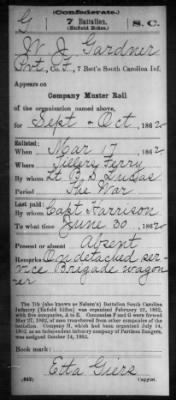 (Confederate.)
G 7 Battalion, S. C.
(Enfield Rifles).
W J Gardner
Pvt, Co. F, 7 Batt'n South Carolina Inf.
Appears on
Company Muster Roll
of the organization named above,
for Sept & Oct, 1862
Enlisted:
When Mar 17, 1862
Where Tillers Ferry
By whom Lt B. S. Lucas
Period The War
Last paid:
By whom Capt Harrison
To what time June 30, 1862
Present or absent Absent
Remarks: On detached ser-
vice Brigade wagon
er
The 7th (also known as Nelson's) Battalion South Carolina
Infantry (Enfield Rifles) was organized February 22, 1862,
with five companies, A to E. Companies F and G were formed
May 1862, of men transferred from other companies of the
battalion. Company H, which had been organized July 14,
1862, as an independent company of Partisan Rangers,
was assigned October 14, 1862.
Book mark:
Etta Giers
(642) Copyist.